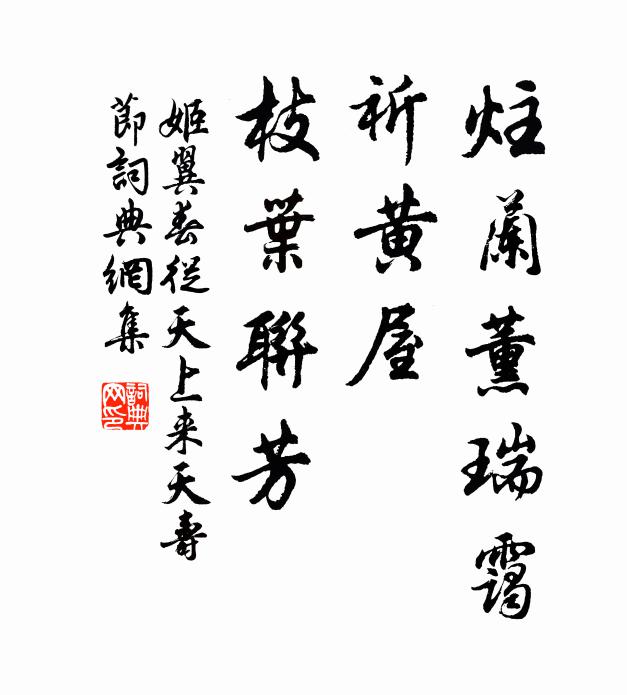 炷蘭薰瑞靄
祈黃屋
枝葉聯芳
姬翼春從天上来天壽
節詞典網集
詞典
网印